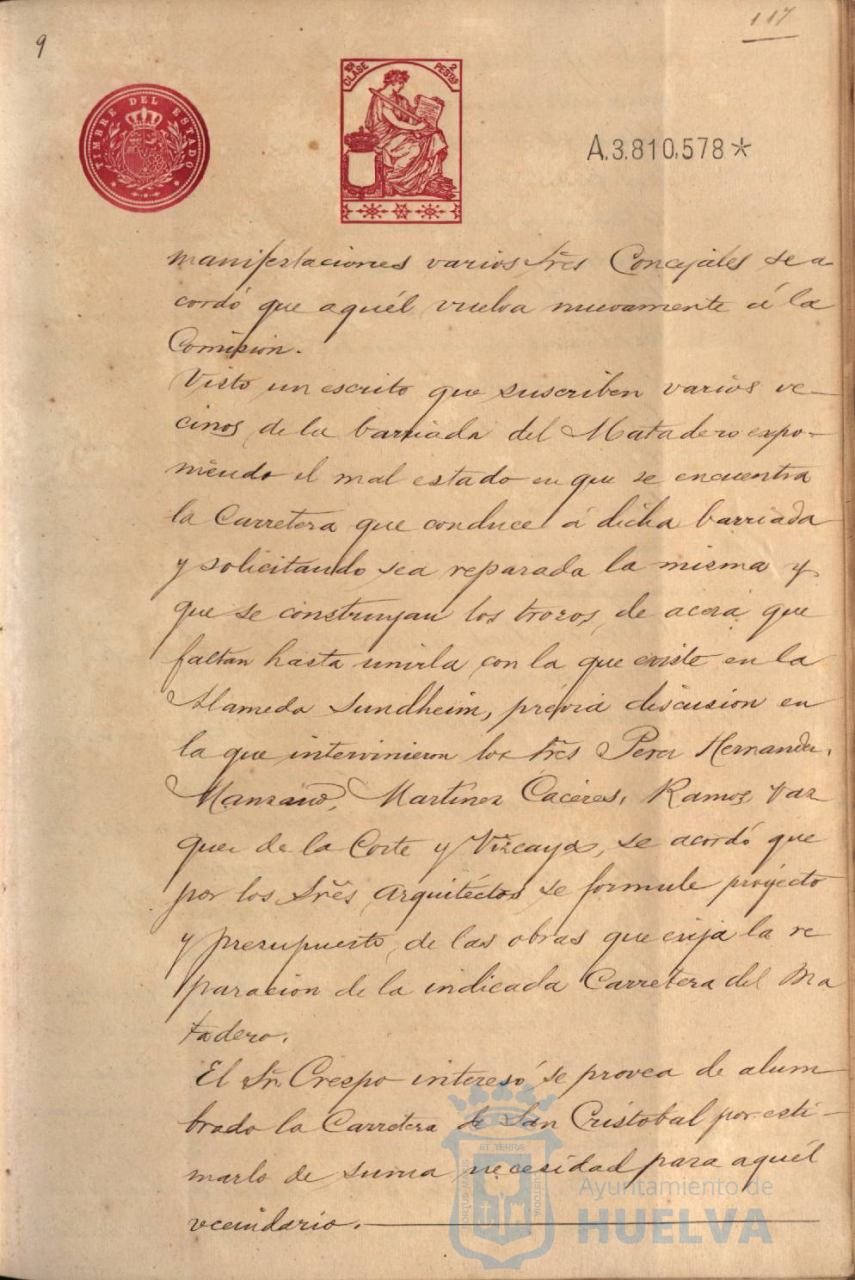 117
9
TIMBRE DEL ESTADO
10ª CLASE 2 PESETAS
A.3.810.578*
manifestaciones varios Sres Concejales se a
cordó que aquél vuelva nuevamente á la
Comision.
Visto un escrito que suscriben varios ve-
cinos de la barriada del Matadero expo-
niendo el mal estado en que se encuentra
la Carretera que conduce á dicha barriada
y solicitando sea reparada la misma y
que se construyan los trozos de acera que
faltan hasta unirla con la que existe en la
Alameda Sundheim, prévia discusion en
la que intervinieron los Sres Perez Hernandez,
Manzano, Martinez Caceres, Ramos, Vaz
quez de la Corte y Vizcaya, se acordó que
por los Sres Arquitéctos se formule proyécto
y presupuesto de las obras que exija la re
paracion de la indicada Carretera del Ma
tadero.
El Sr Crespo interesó se provea de alum
brado la Carretera de San Cristobal por esti-
marlo de suma necesidad para aquél
vecindario.
Ayuntamiento de
HUELVA